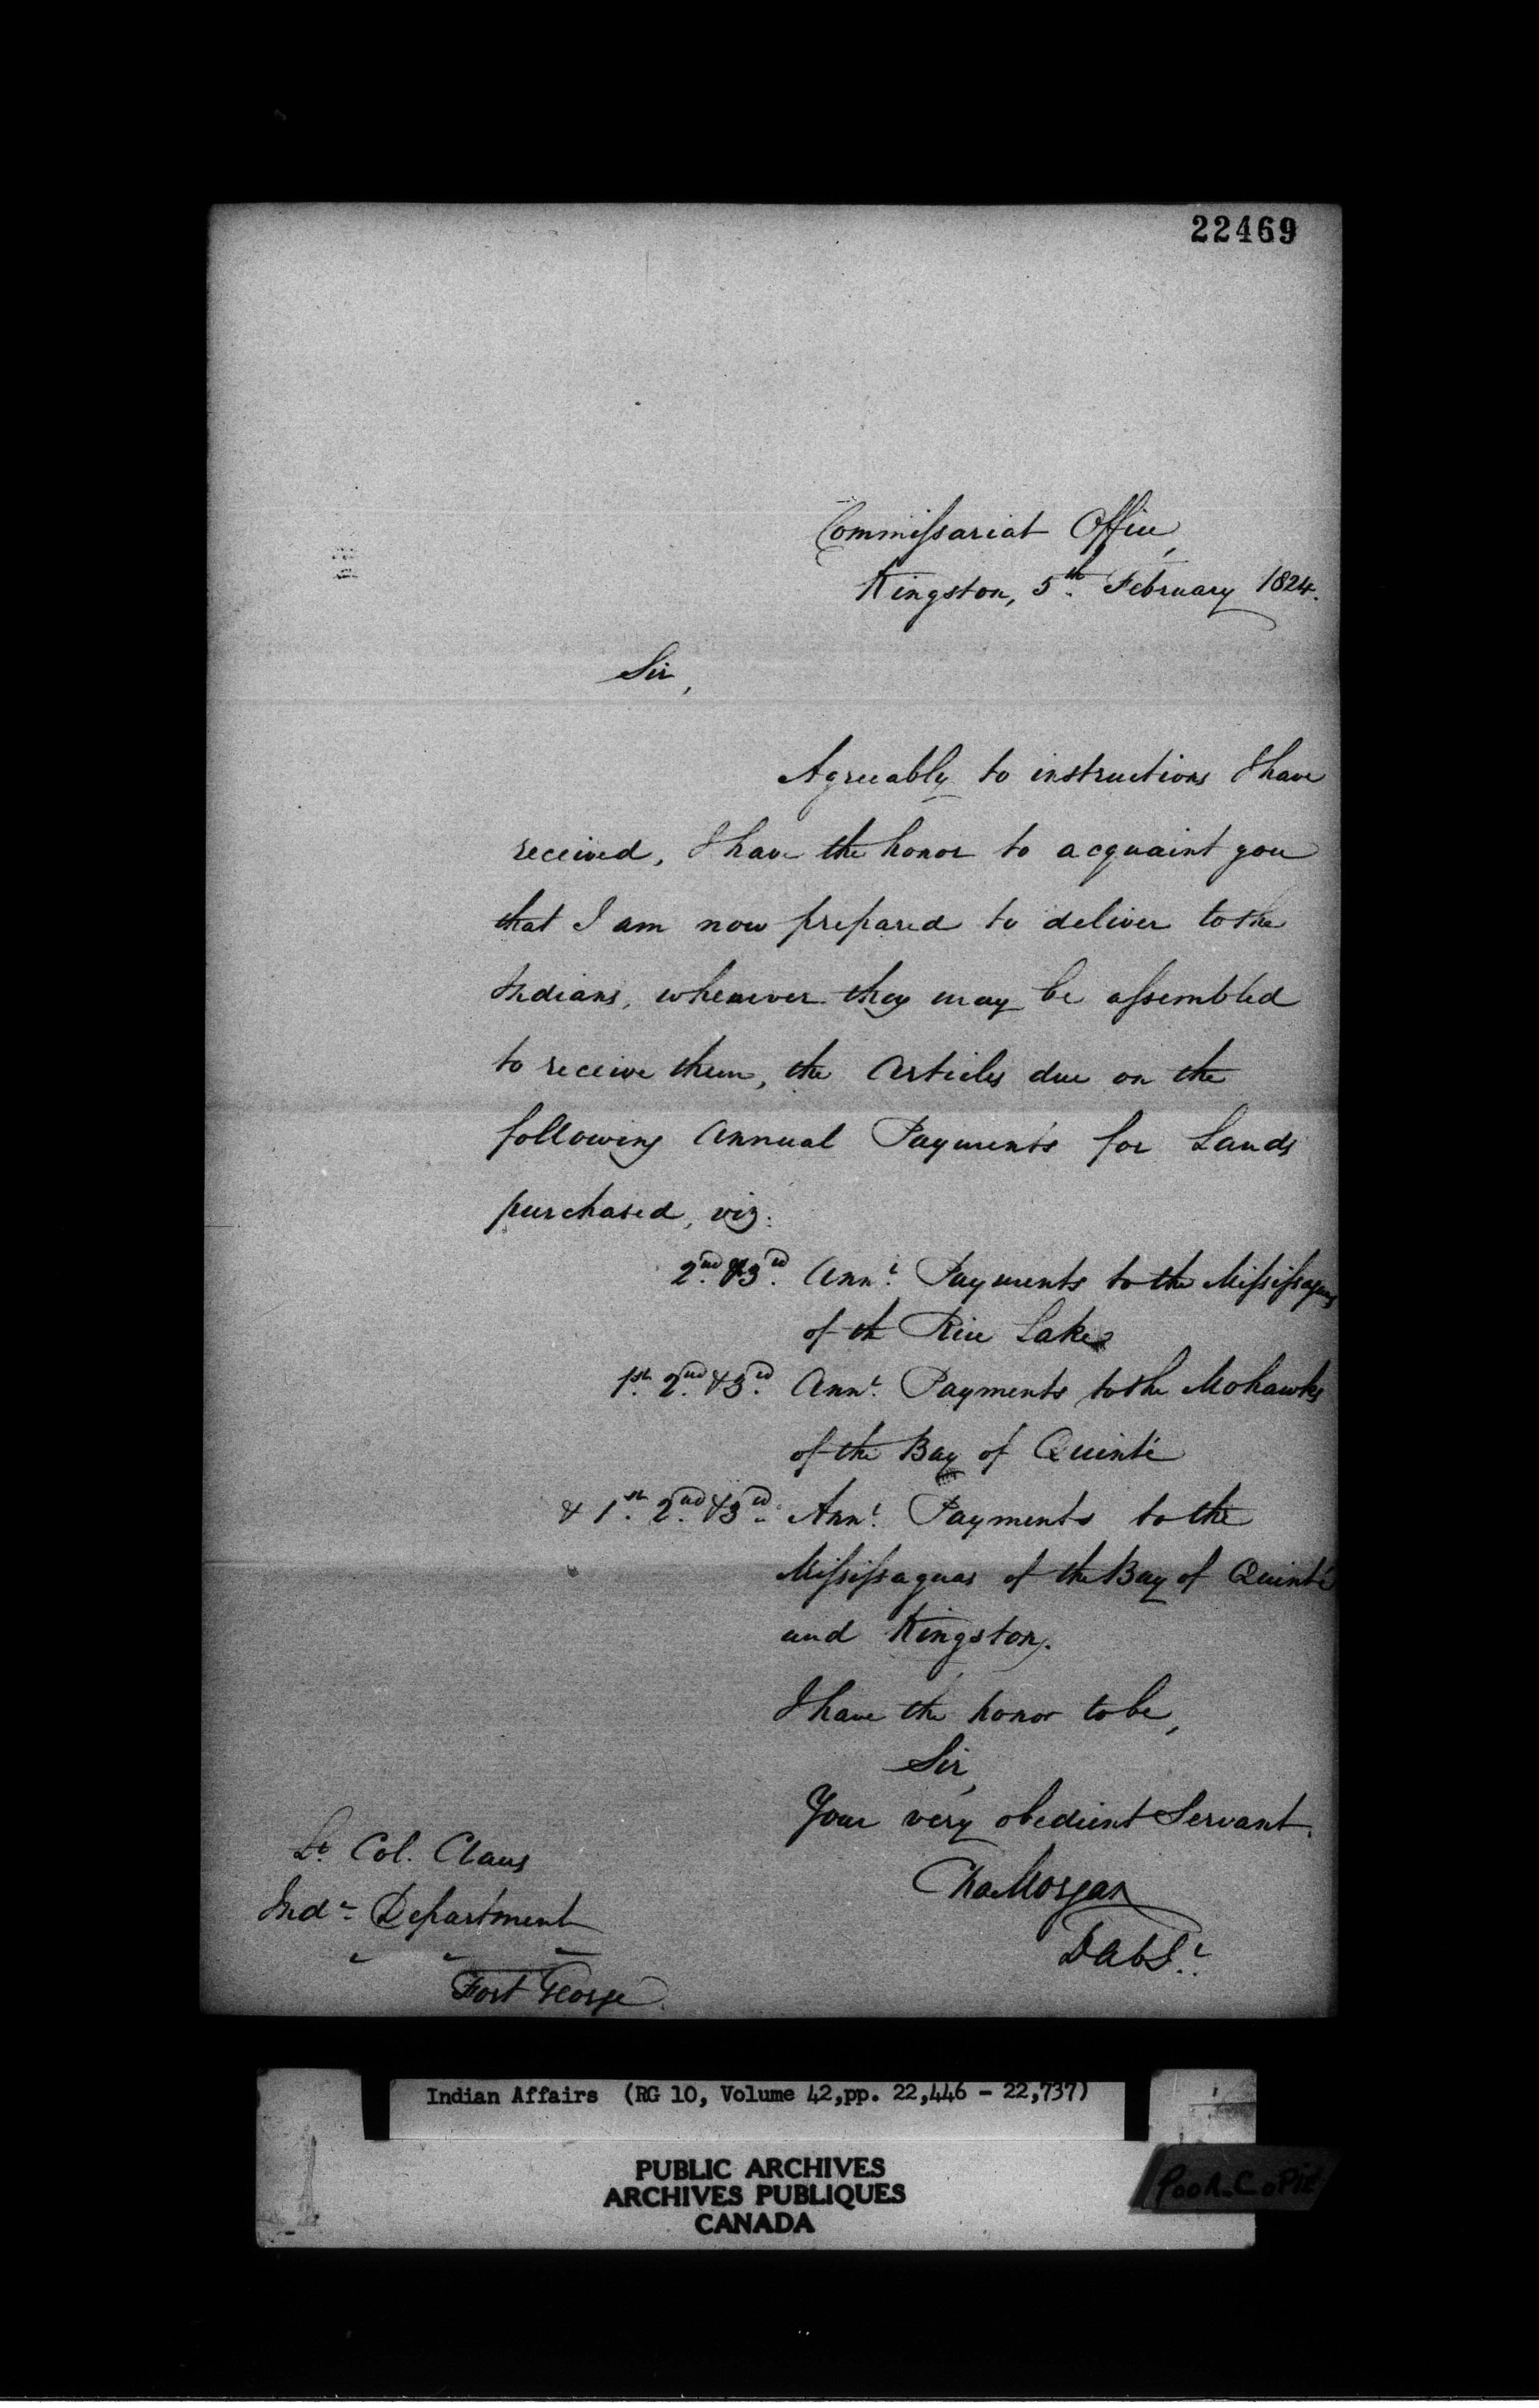 22469
Commissariat Office,
Kingston, 5th February 1824.
Sir,
Agreeably to instructions I have
received, I have the honor to acquaint you
that I am now prepared to deliver to the
Indians, whenever they may be assembled
to receive them, the Articles due on the
following Annual Payments for Lands
purchased, viz:
2nd & 3rd Annl. Payments to the Mississaguas
of the Rice Lake
1st. 2nd & 3rd Annl. Payments to the Mohawks
of the Bay of Quinté
& 1st. 2nd & 3rd Annl. Payments to the
Mississaguas of the Bay of Quinté
and Kingston.
I have the honor to be,
Sir,
Your very obedient Servant.
Cha Morgan
Lt. Col. Claus
Indn Department
Fort George
Indian Affairs (RG 10, Volume 42,pp. 22,446 - 22,737)
PUBLIC ARCHIVES
ARCHIVES PUBLIQUES
CANADA
POOR COPIE